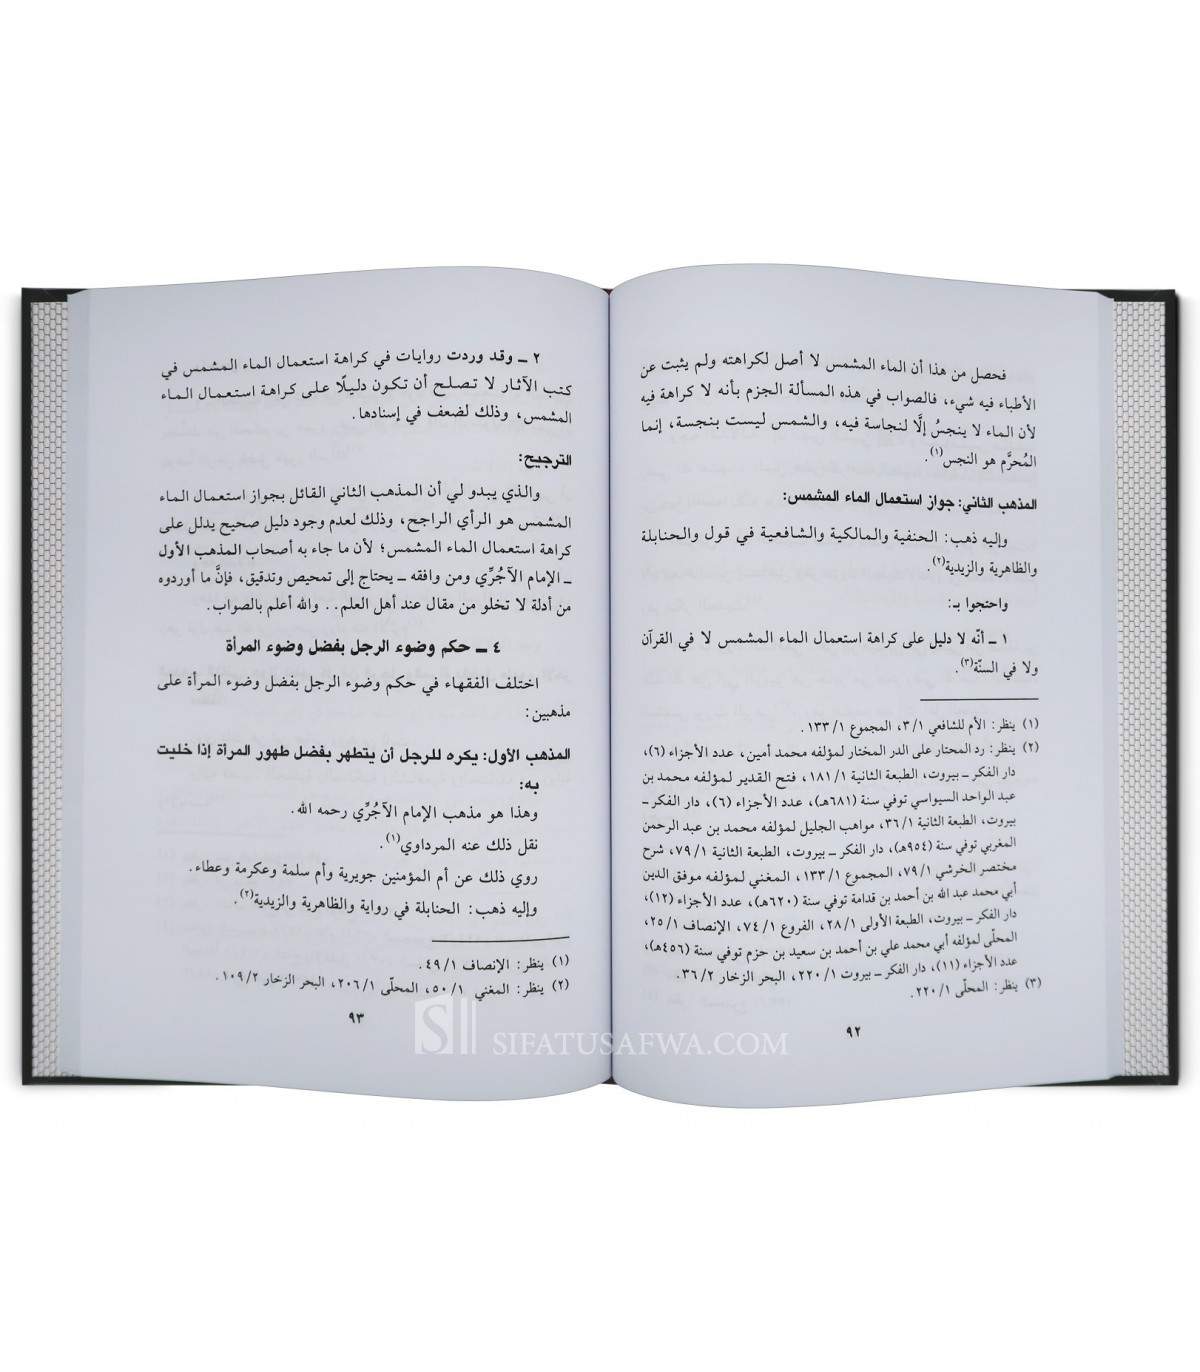 فحصل من هذا أن الماء المشمس لا أصل لكراهته ولم يثبت عن
الأطباء فيه شيء، فالصواب في هذه المسألة الجزم بأنه لا كراهة فيه
لأن الماء لا ينجسُ إلَّا لنجاسة فيه، والشمس ليست بنجسة، إنما
المُحرَّم هو النجس(١).
المذهب الثاني: جواز استعمال الماء المشمس:
وإليه ذهب: الحنفية والمالكية والشافعية في قول والحنابلة
والظاهرية والزيدية(٢).
واحتجوا بـ:
١ ــ أنّه لا دليل على كراهة استعمال الماء المشمس لا في القرآن
ولا في السنّة(٣).
(١) ينظر: الأم للشافعي ٣/١، المجموع ١٣٣/١.
(٢) ينظر: رد المحتار على الدر المختار لمؤلفه محمد أمين، عدد الأجزاء (٦)،
دار الفكر ــ بيروت، الطبعة الثانية ١٨١/١، فتح القدير لمؤلفه محمد بن
عبد الواحد السيواسي توفي سنة (٦٨١هـ)، عدد الأجزاء (٦)، دار الفكر ــ
بيروت، الطبعة الثانية ٣٦/١، مواهب الجليل لمؤلفه محمد بن عبد الرحمن
المغربي توفي سنة (٩٥٤هـ)، دار الفكر ــ بيروت، الطبعة الثانية ٧٩/١، شرح
مختصر الخرشي ٧٩/١، المجموع ١٣٣/١، المغني لمؤلفه موفق الدين
أبي محمد عبد الله بن أحمد بن قدامة توفي سنة (٦٢٠هـ)، عدد الأجزاء (١٢)،
دار الفكر ــ بيروت، الطبعة الأولى ٢٨/١، الفروع ٧٤/١، الإنصاف ٢٥/١،
المحلّى لمؤلفه أبي محمد علي بن أحمد بن سعيد بن حزم توفي سنة (٤٥٦هـ)،
عدد الأجزاء (١١)، دار الفكر ــ بيروت ٢٢٠/١، البحر الزخار ٣٦/٢.
(٣) ينظر: المحلّى ٢٢٠/١.
٩٢
٢ ــ وقد وردت روايات في كراهة استعمال الماء المشمس في
كتب الآثار لا تصلح أن تكون دليلًا على كراهة استعمال الماء
المشمس، وذلك لضعف في إسنادها.
الترجيح:
والذي يبدو لي أن المذهب الثاني القائل بجواز استعمال الماء
المشمس هو الرأي الراجح، وذلك لعدم وجود دليل صحيح يدلل على
كراهة استعمال الماء المشمس؛ لأن ما جاء به أصحاب المذهب الأول
ــ الإمام الآجُرِّي ومن وافقه ــ يحتاج إلى تمحيص وتدقيق، فإنَّ ما أوردوه
من أدلة لا تخلو من مقال عند أهل العلم.. والله أعلم بالصواب.
٤ ــ حكم وضوء الرجل بفضل وضوء المرأة
اختلف الفقهاء في حكم وضوء الرجل بفضل وضوء المرأة على
مذهبين:
المذهب الأول: يكره للرجل أن يتطهر بفضل طهور المرأة إذا خليت
به:
وهذا هو مذهب الإمام الآجُرِّي رحمه الله.
نقل ذلك عنه المرداوي(١).
روي ذلك عن أم المؤمنين جويرية وأم سلمة وعكرمة وعطاء.
وإليه ذهب: الحنابلة في رواية والظاهرية والزيدية(٢).
(١) ينظر: الإنصاف ٤٩/١.
(٢) ينظر: المغني ٥٠/١، المحلّى ٢٠٦/١، البحر الزخار ١٠٩/٢.
٩٣
SIFATUSAFWA.COM